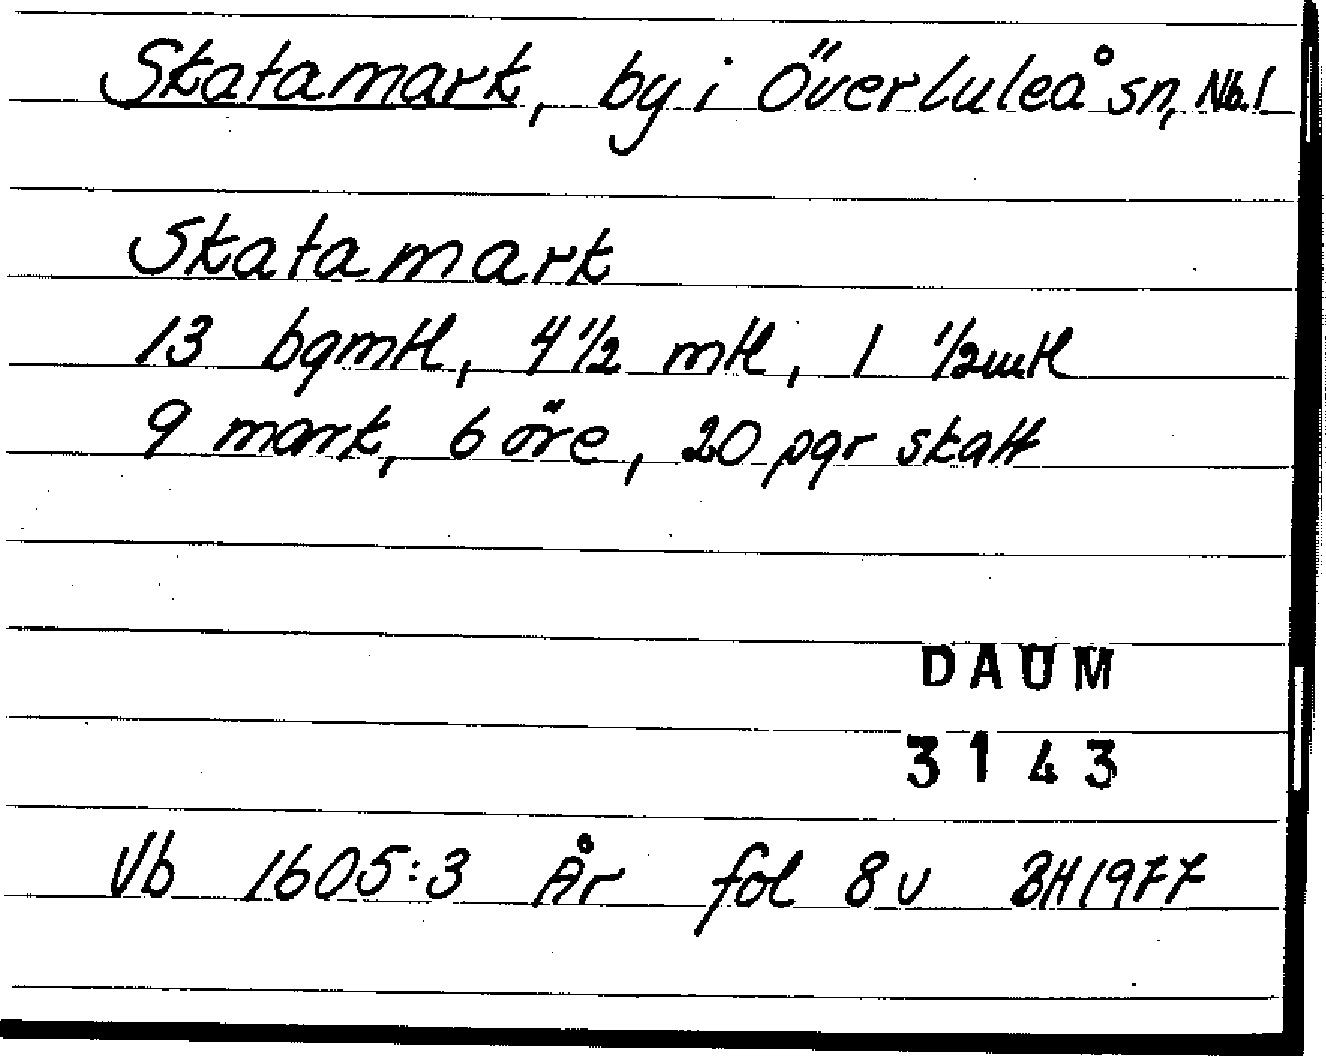 Skatamark, by i Överluleå sn, Nb. l
Skatamark
13 bgmtl, 4 1/2 mtl, 1 1/2 mtl
9 mark, 6 öre, 20 pgr skatt
DAUM
3143
Vb 1605:3 År fol 8v BH 1977